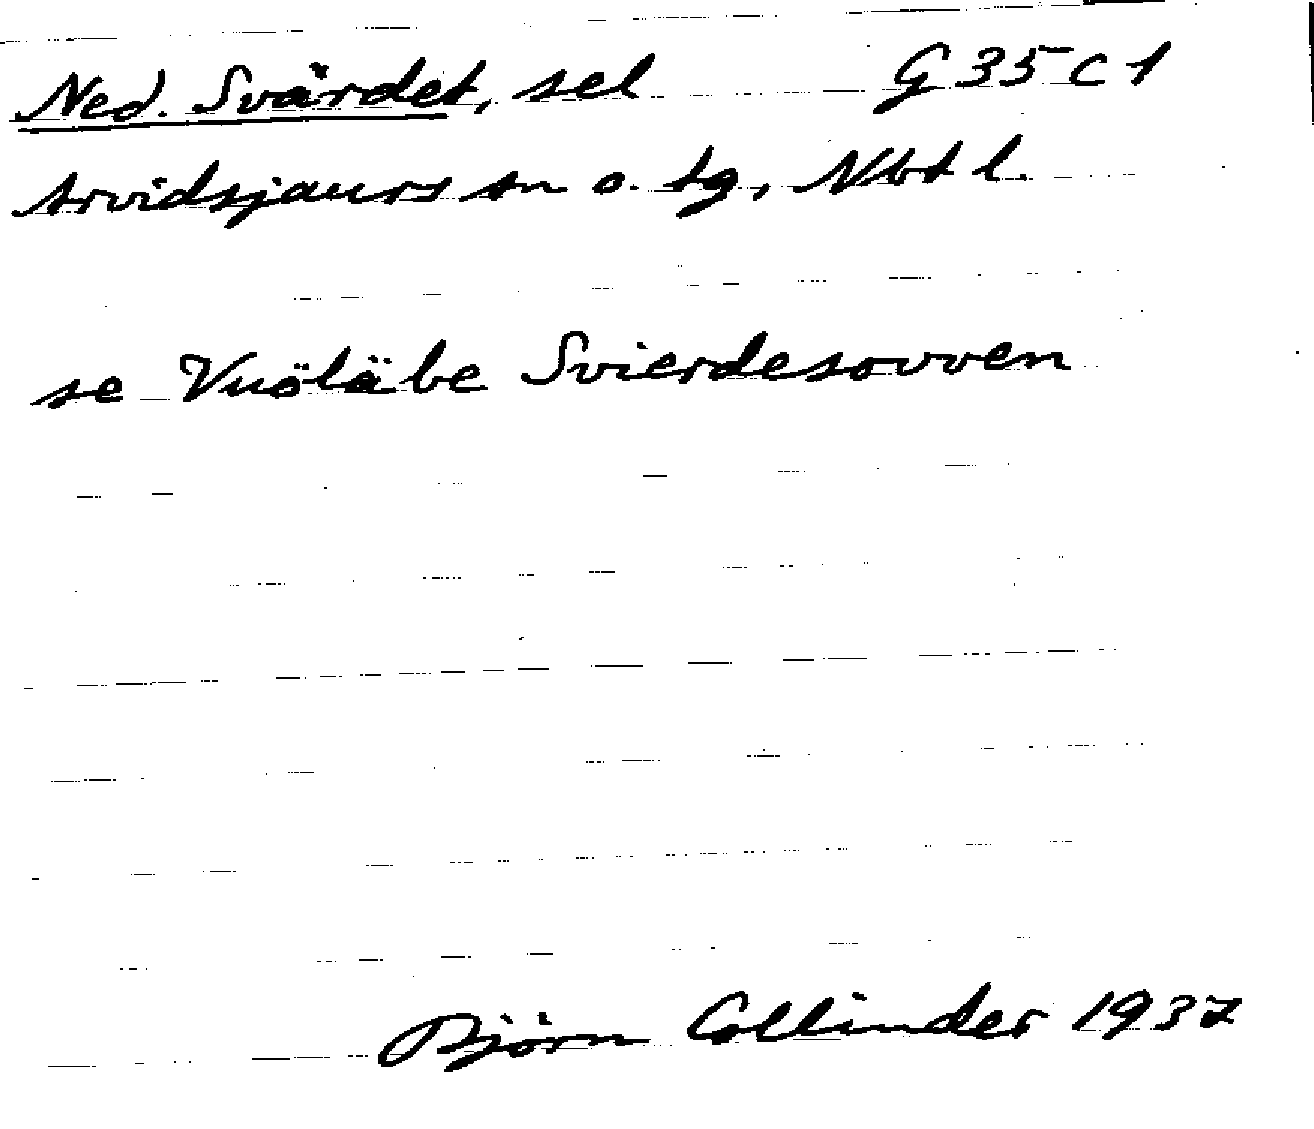 Ned. Svärdet, sel G 35 C 1
Arvidsjaurs sn o. tg, Nbt l.
se Vuöläbe Svierdesovven
Björn Collinder 1937